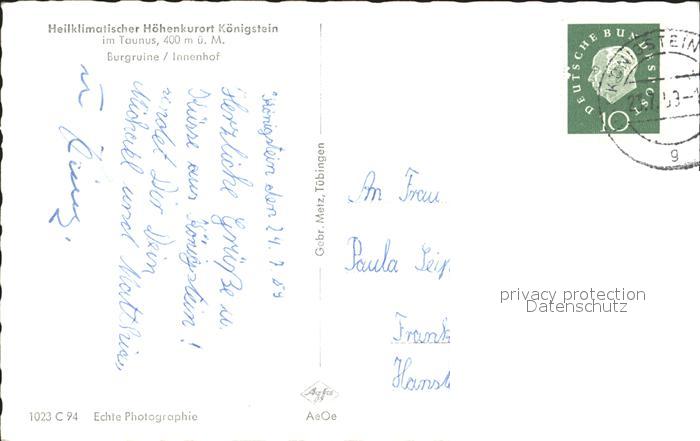 Heilklimatischer Höhenkurort Königstein
im Taunus, 400 m ü. M.
Burgruine / Innenhof
Königstein den 24.7.59
Herzliche Grüße u.
Küsse aus Königstein!
sendet Dir Dein
Michael und Matthias
u.
Gebr. Metz, Tübingen
DEUTSCHE BUNDESPOST
10
KÖNIGSTEIN
g
An Frau
Paula
Frank
Hanst
privacy protection
Datenschutz
1023 C 94 Echte Photographie
Agfa
AeOe